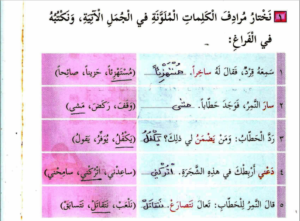 ٤٦ نَخْتَارُ مُرَادِفَ الْكَلِمَاتِ الْمُلَوَّنَةِ فِي الْجُمَلِ الْآتِيَةِ، وَنَكْتُبُهُ
فِي الْفَرَاغِ:
١ سَمِعَهُ قِرْدٌ، فَقَالَ لَهُ سَاخِراً: مُسْتَهْزِئاً (مُسْتَهْزِئاً، حَزِيناً، صَائِحاً)
٢ سَارَ النَّمِرُ، فَوَجَدَ حَطَّاباً. مَشَى (وَقَفَ، رَكَضَ، مَشَى)
٣ رَدَّ الْحَطَّابُ: وَمَنْ يَضْمَنُ لِي ذَلِكَ؟ يَكْفُلُ (يَكْفُلُ، يُوَفِّرُ، يَقُولُ)
٤ دَعْنِي أَرْبِطُكَ فِي هَذِهِ الشَّجَرَةِ. اتْرُكْنِي (سَاعِدْنِي، اتْرُكْنِي، سَامِحْنِي)
٥ قَالَ النَّمِرُ لِلْحَطَّابِ: تَعَالَ نَتَصَارَعْ. نَتَقَاتَلْ (نَلْعَبْ، نَتَقَاتَلْ، نَتَسَابَقْ)